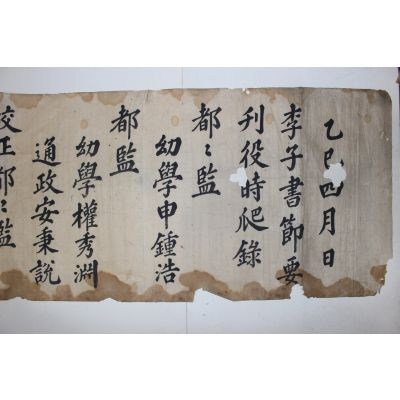 乙巳四月日
李子書節要
刊役時爬錄
都〻監
幼學申鍾浩
都監
幼學權秀淵
通政安秉說
校正都〻監